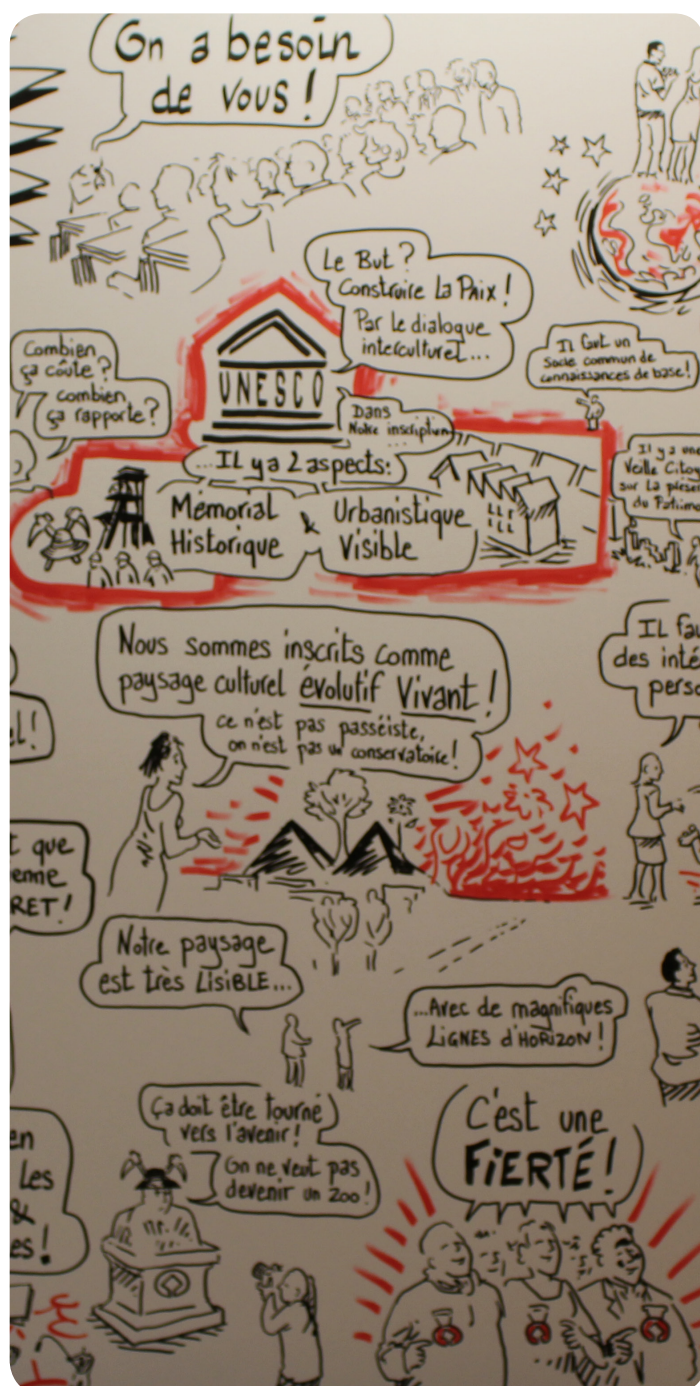 On a besoin
de vous !
Le But ?
Construire La Paix !
Par le dialogue
interculturel...
Combien
ça coûte ?
combien
ça rapporte ?
UNESCO
Il faut un
Socle commun de
connaissances de base !
Dans
Notre inscription
...
...IL y a 2 aspects :
Mémorial
Historique
&
Urbanistique
Visible
Il y a une
Veille
sur la
du
Nous sommes inscrits comme
paysage culturel évolutif Vivant !
ce n'est pas passéiste,
on n'est pas un conservatoire !
IL
des
el !
que
enne
RET !
Notre paysage
est très LISIBLE...
...Avec de magnifiques
LIGNES d'HORIZON !
Ça doit être tourné
vers l'avenir !
On ne veut pas
devenir un Zoo !
C'est une
FIERTÉ !
en
Les
&
es !